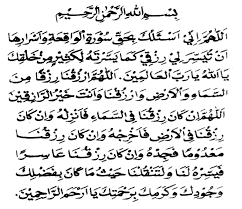 بِسْمِ اللهِ الرَّحْمٰنِ الرَّحِيْمِ
اَللّٰهُمَّ اِنِّيْ اَسْئَلُكَ بِحَقِّ سُوْرَةِ الْوَاقِعَةِ وَاَسْرَارِهَا
اَنْ تُيَسِّرَ لِيْ رِزْقِيْ كَمَا يَسَّرْتَهُ لِكَثِيْرٍ مِنْ خَلْقِكَ
يَا اَللهُ يَارَبَّ الْعَالَمِيْنَ. اَللّٰهُمَّ ارْزُقْنَا رِزْقًا مِنَ
السَّمَاءِ وَالْاَرْضِ وَارْزُقْنَا وَاَنْتَ خَيْرُ الرَّازِقِيْنَ
اَللّٰهُمَّ اِنْ كَانَ رِزْقُنَا فِي السَّمَاءِ فَاَنْزِلْهُ وَاِنْ كَانَ
رِزْقُنَا فِي الْاَرْضِ فَاَخْرِجْهُ وَاِنْ كَانَ رِزْقُنَا
مَعْدُوْمًا فَجِدْهُ وَاِنْ كَانَ رِزْقُنَا عَاسِرًا
فَيَسِّرْهُ لَنَا وَلِتَنْقُلَنَا حَيْثُ مَا كَانَ بِفَضْلِكَ
وَجُوْدِكَ وَكَرَمِكَ بِرَحْمَتِكَ يَا اَرْحَمَ الرَّاحِمِيْنَ.